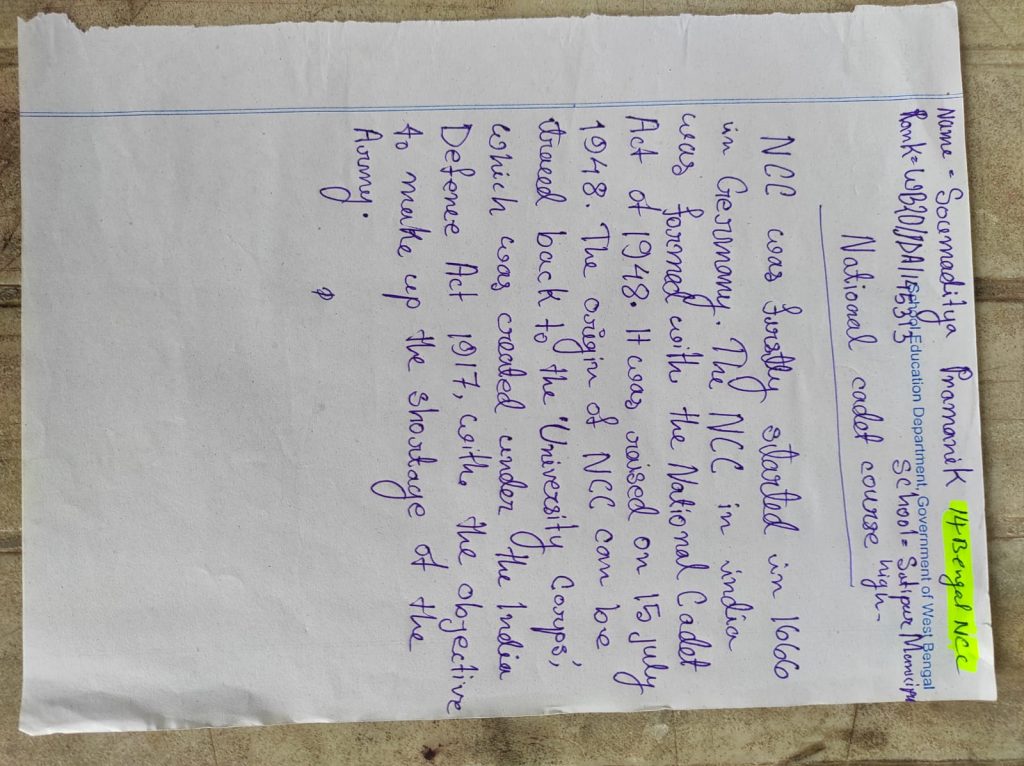 Name = Soumaditya Pramanik 14 Bengal NCC
School Education Department, Government of West Bengal
Rank = WB20/JDA/145313 School = Satipur Municipa
high-
National cadet course
NCC was firstly started in 1666
in Germany. The NCC in india
was formed with the National Cadet
Act of 1948. It was raised on 15 july
1948. The origin of NCC can be
traced back to the 'University Corps',
which was created under the India
Defence Act 1917, with the objective
to make up the shortage of the
Army.